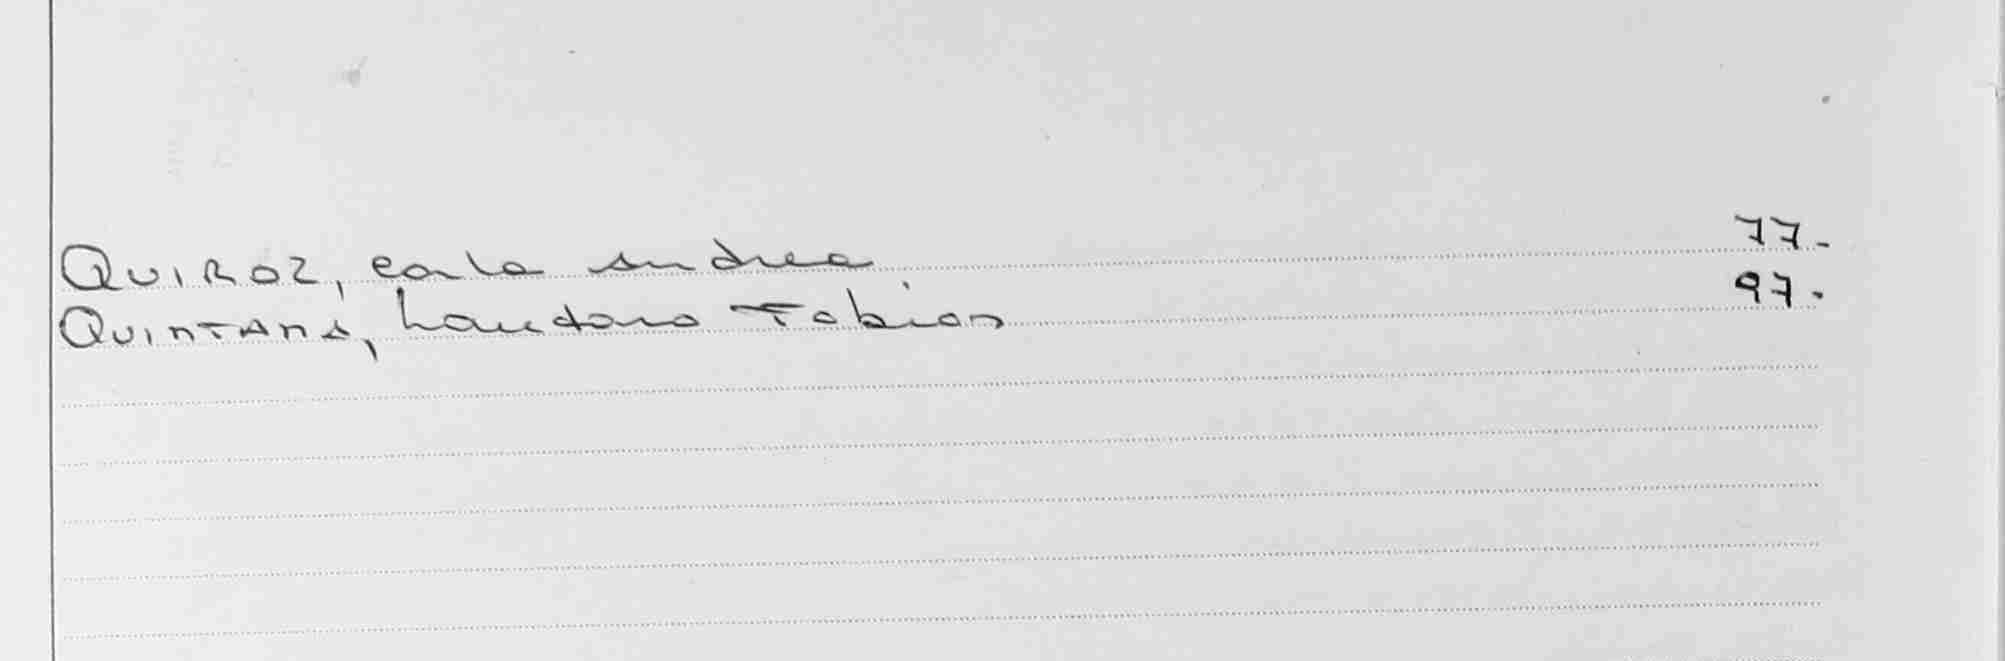 QUIROZ, Carla Andrea 77.-
QUINTANA, Lautaro Fabian 97.-